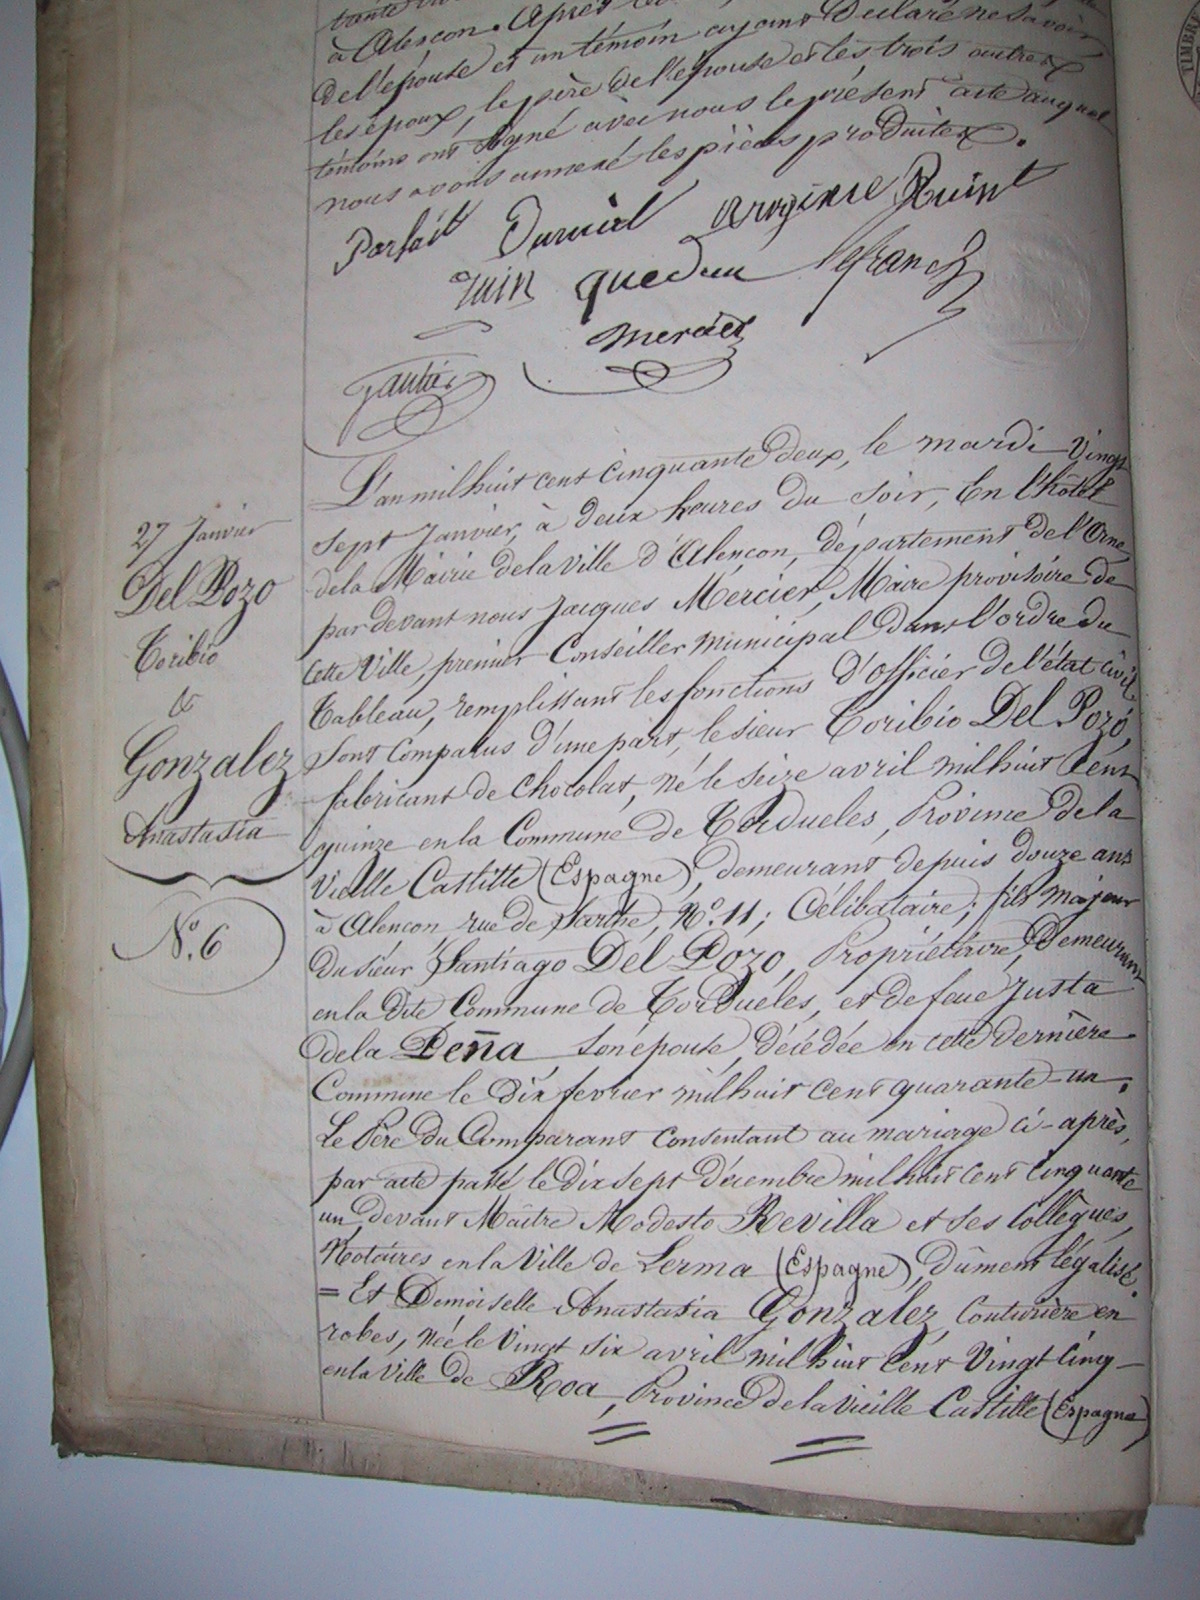 à Alençon. Après
de l'épouse et un témoin ayant Déclaré ne savoir
les époux, le père de l'épouse et les trois autres
témoins ont signé avec nous le présent acte auquel
nous avons annexé les pièces produites.
Parfait Duruel Virginie Ruint
quedru lefranc
Mercier
gautier
27 Janvier
Del Pozo
Toribio
&
Gonzalez
Anastasia
N°. 6
L'an mil huit cent cinquante deux, le mardi vingt
sept Janvier, à deux heures du soir, En l'hôtel
de la Mairie de la ville d'Alençon, département de l'Orne,
par devant nous Jacques Mercier, Maire provisoire de
cette Ville, premier Conseiller municipal dans l'ordre du
Tableau, remplissant les fonctions d'officier de l'état civil
Sont comparus d'une part, le sieur Toribio Del Pozo,
fabricant de Chocolat, né le seize avril mil huit cent
quinze en la Commune de Tordueles, Province de la
Vieille Castille (Espagne), demeurant depuis douze ans
à Alençon rue de Sarthe, N°. 11; Célibataire; fils majeur
du sieur Santiago Del Pozo, Propriétaire, Demeurant
en la dite Commune de Tordueles, et de feue Justa
de la Peña son épouse, décédée en cette dernière
Commune le dix fevrier mil huit cent quarante-un.
Le Père du Comparant consentant au mariage ci-après,
par acte passé le dix sept décembre mil huit cent cinquante
un devant Maître Modesto Revilla et ses Collègues,
Notaires en la Ville de Lerma (Espagne), dûment légalisé.
= Et Demoiselle Anastasia Gonzalez, Couturière en
robes, née le vingt six avril mil huit cent Vingt Cinq
en la Ville de Roa, Province de la Vieille Castille (Espagne)